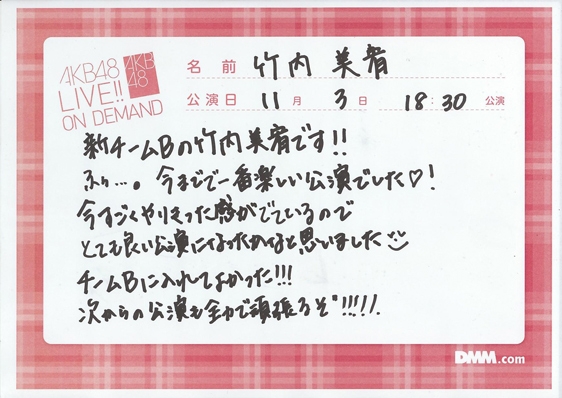 AKB48
LIVE!!
ON DEMAND
AKB
48
名前 竹内 美宥
公演日 11月 3日 18:30 公演
新チームBの竹内美宥です!!
ふぅ…。今までで一番楽しい公演でした♡!
今すごくやりきった感がでているので
とても良い公演になったかなと思いました
チームBに入れてよかった!!!
次からの公演も全力で頑張るぞ!!!!!
DMM.com